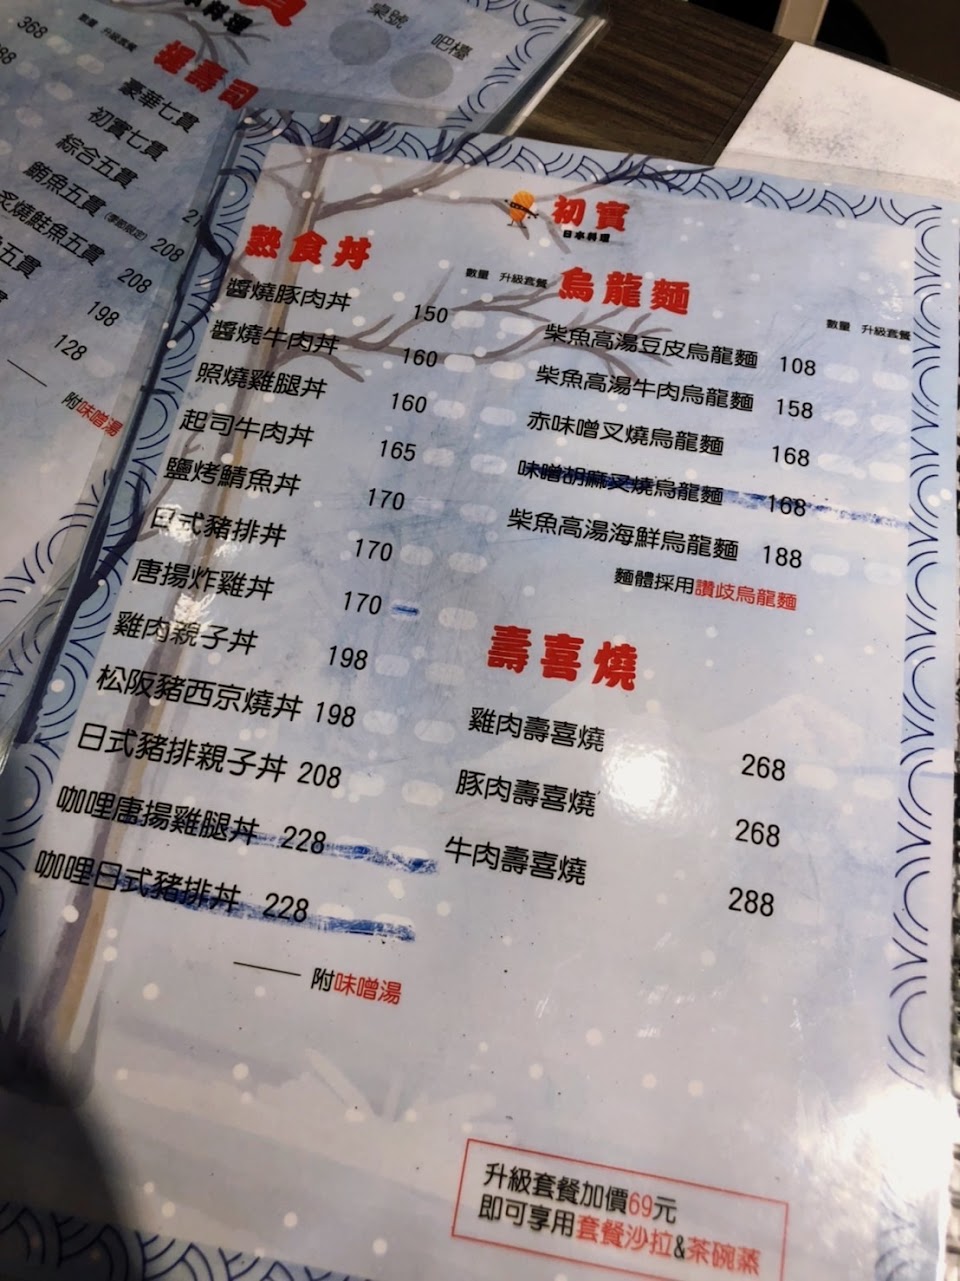 日本料理
桌號
吧檯
數量 升級套餐
握壽司
368
豪華七貫
初實七貫
綜合五貫
鮪魚五貫(季節限定) 208
炙燒鮭魚五貫 208
五貫 198
128
附味噌湯
初實
日本料理
熟食丼
數量 升級套餐
醬燒豚肉丼 150
醬燒牛肉丼 160
照燒雞腿丼 160
起司牛肉丼 165
鹽烤鯖魚丼 170
日式豬排丼 170
唐揚炸雞丼 170
雞肉親子丼 198
松阪豬西京燒丼 198
日式豬排親子丼 208
咖哩唐揚雞腿丼 228
咖哩日式豬排丼 228
附味噌湯
烏龍麵
數量 升級套餐
柴魚高湯豆皮烏龍麵 108
柴魚高湯牛肉烏龍麵 158
赤味噌叉燒烏龍麵 168
味噌胡麻叉燒烏龍麵 168
柴魚高湯海鮮烏龍麵 188
麵體採用讚歧烏龍麵
壽喜燒
雞肉壽喜燒 268
豚肉壽喜燒 268
牛肉壽喜燒 288
升級套餐加價69元
即可享用套餐沙拉&茶碗蒸